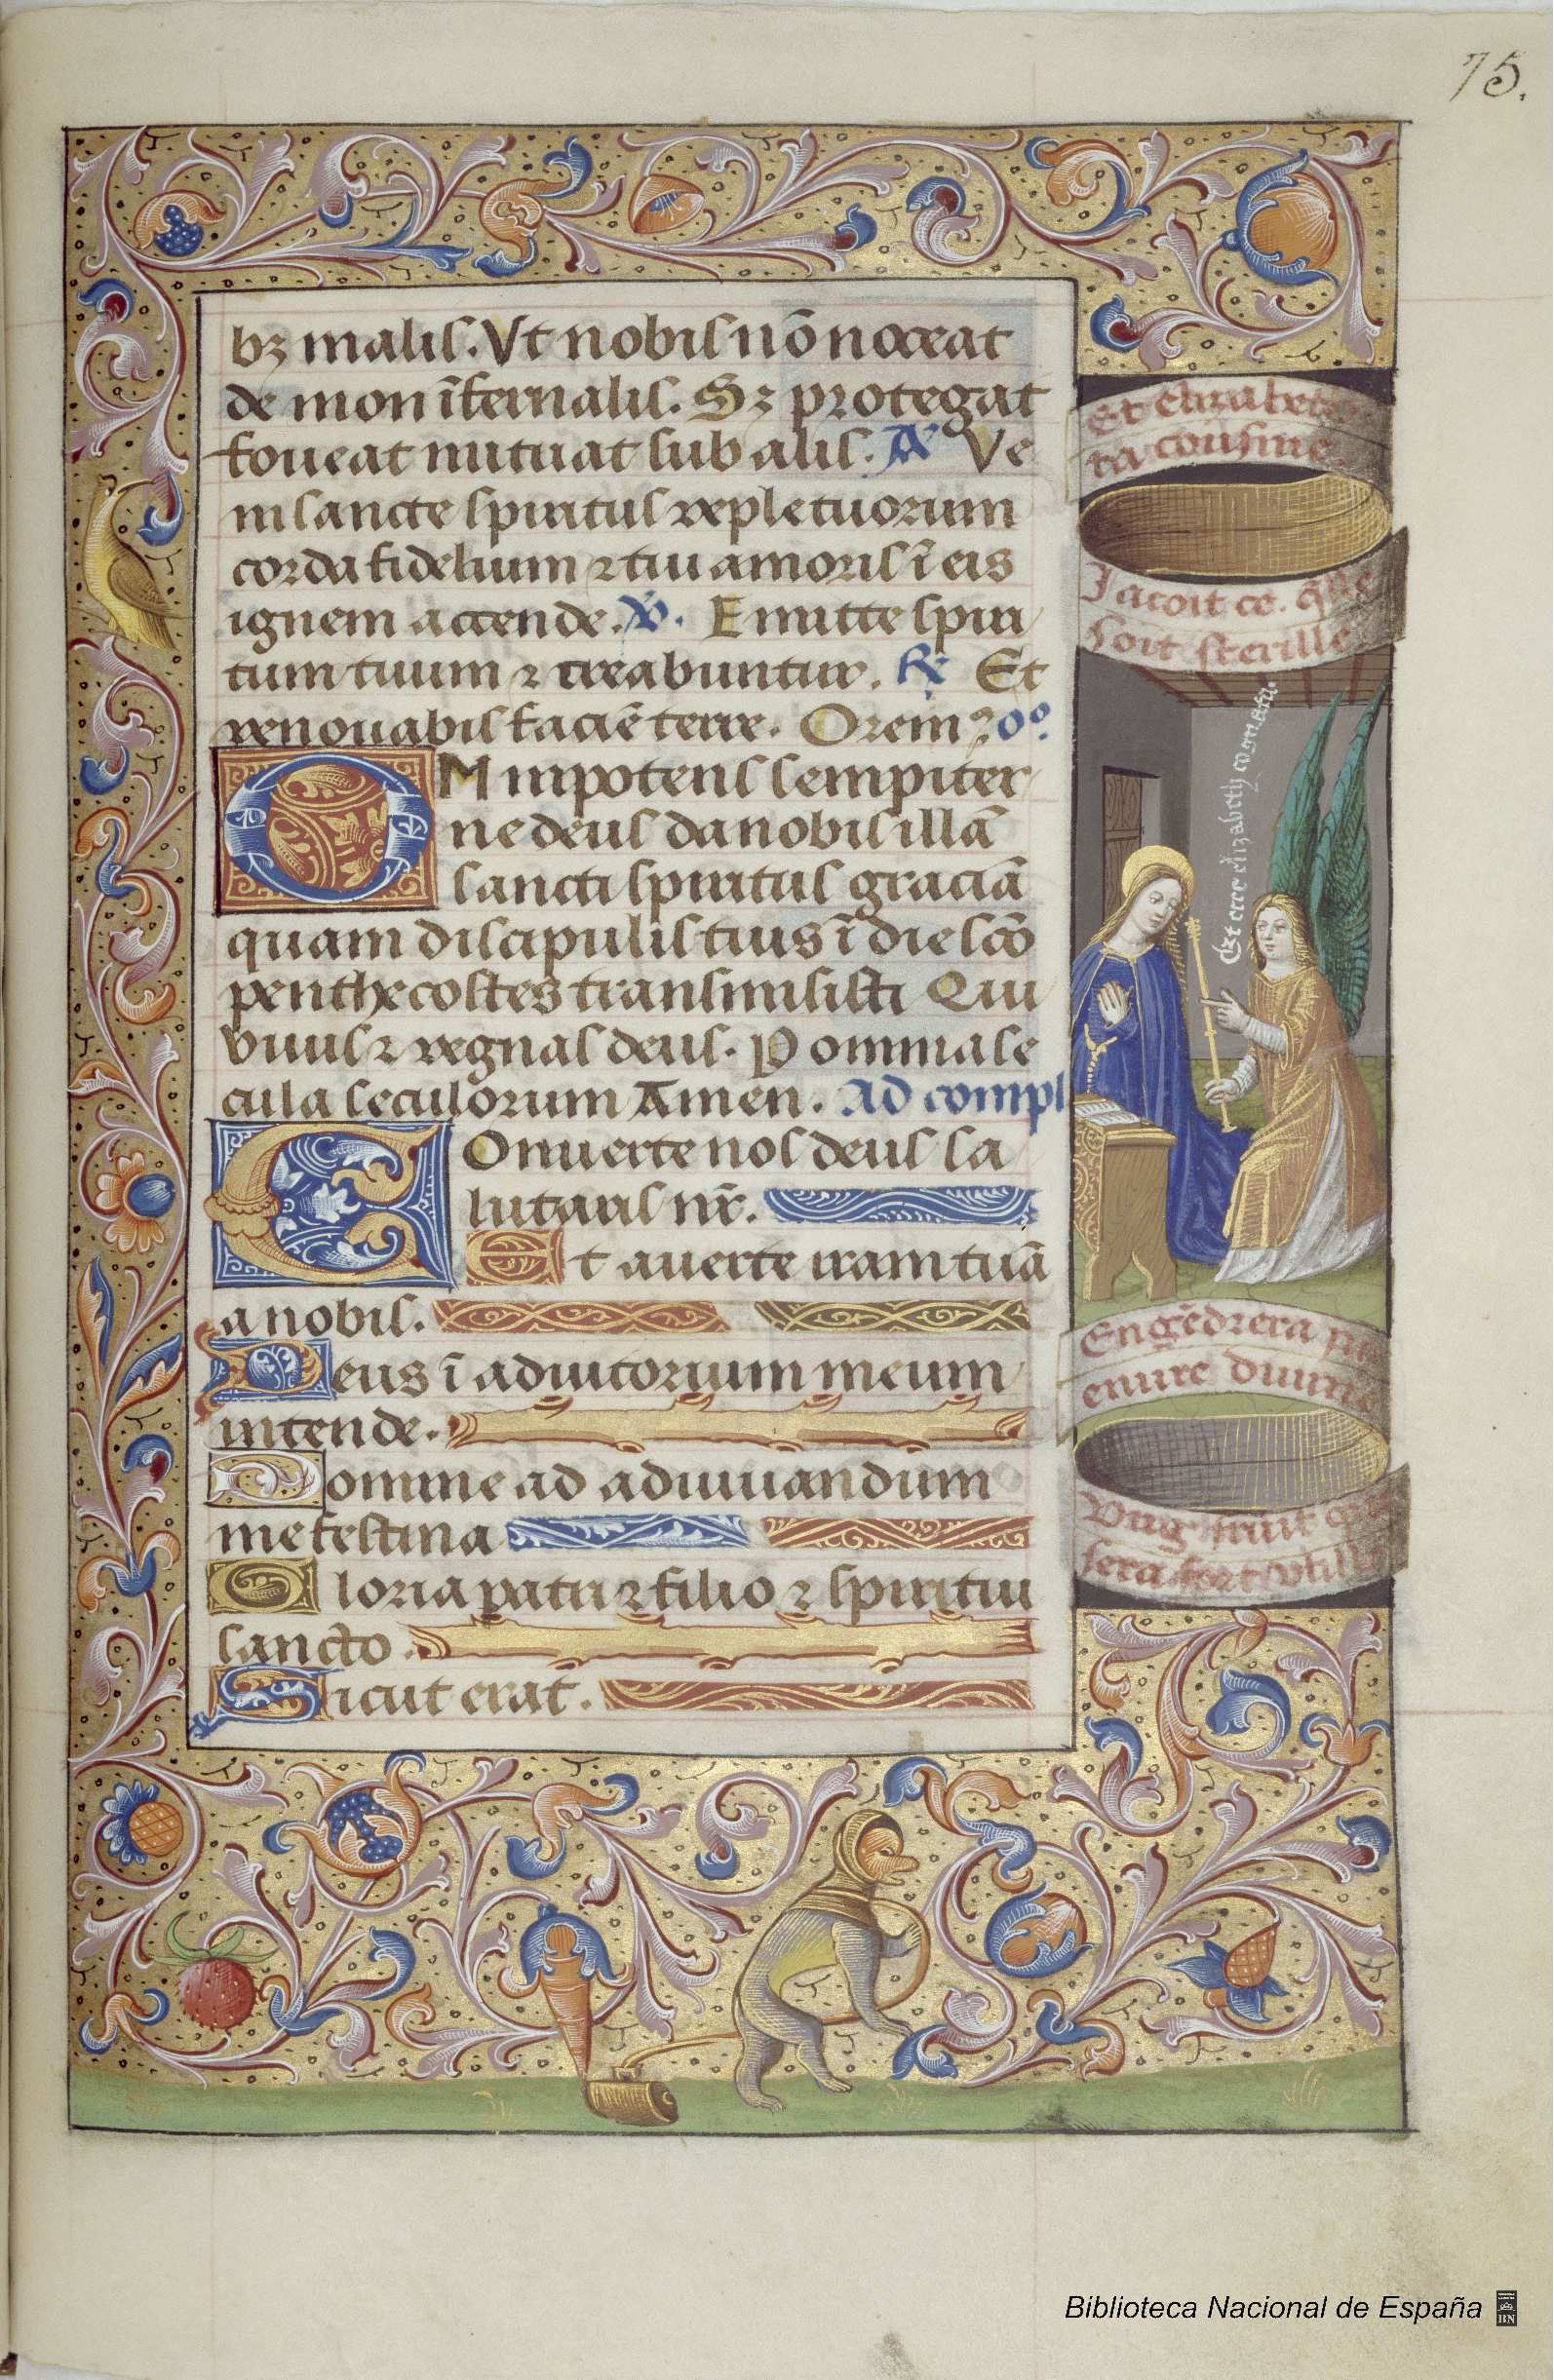 75.
bꝫ malis. Vt nobis nō noceat
de mon īfernalis. Sꝫ protegat
foueat nutriat sub alis. Añ Ve
ni sancte spiritus reple tuorum
corda fidelium ⁊ tui amoris ī eis
ignem accende. v̄. Emitte spiri
tum tuum ⁊ creabuntur. ℟ Et
renouabis faciē terre. Oremꝰ oᵒ.
OMnipotens sempiter
ne deus da nobis illā
sancti spiritus graciā
quam discipulis tuis ī die scō
penthecostes transmisisti Qui
viuis ⁊ regnas deus. P omnia se
cula seculorum Amen. Ad compl
COnuerte nos deus sa
lutaris nr̄.
Et auerte iram tuā
a nobis.
Deus ī adiutorium meum
intende.
Domine ad adiuuandum
me festina
Gloria patri ⁊ filio ⁊ spiritui
sancto.
Sicut erat.
Et elizabeth
ta cousine
Jacoit ce. q̄lle
soit sterille
Et ecce elizabeth cognata.
Engēdrera
enure diuine
Vng fruit
sera fort vtille
Biblioteca Nacional de España
BN